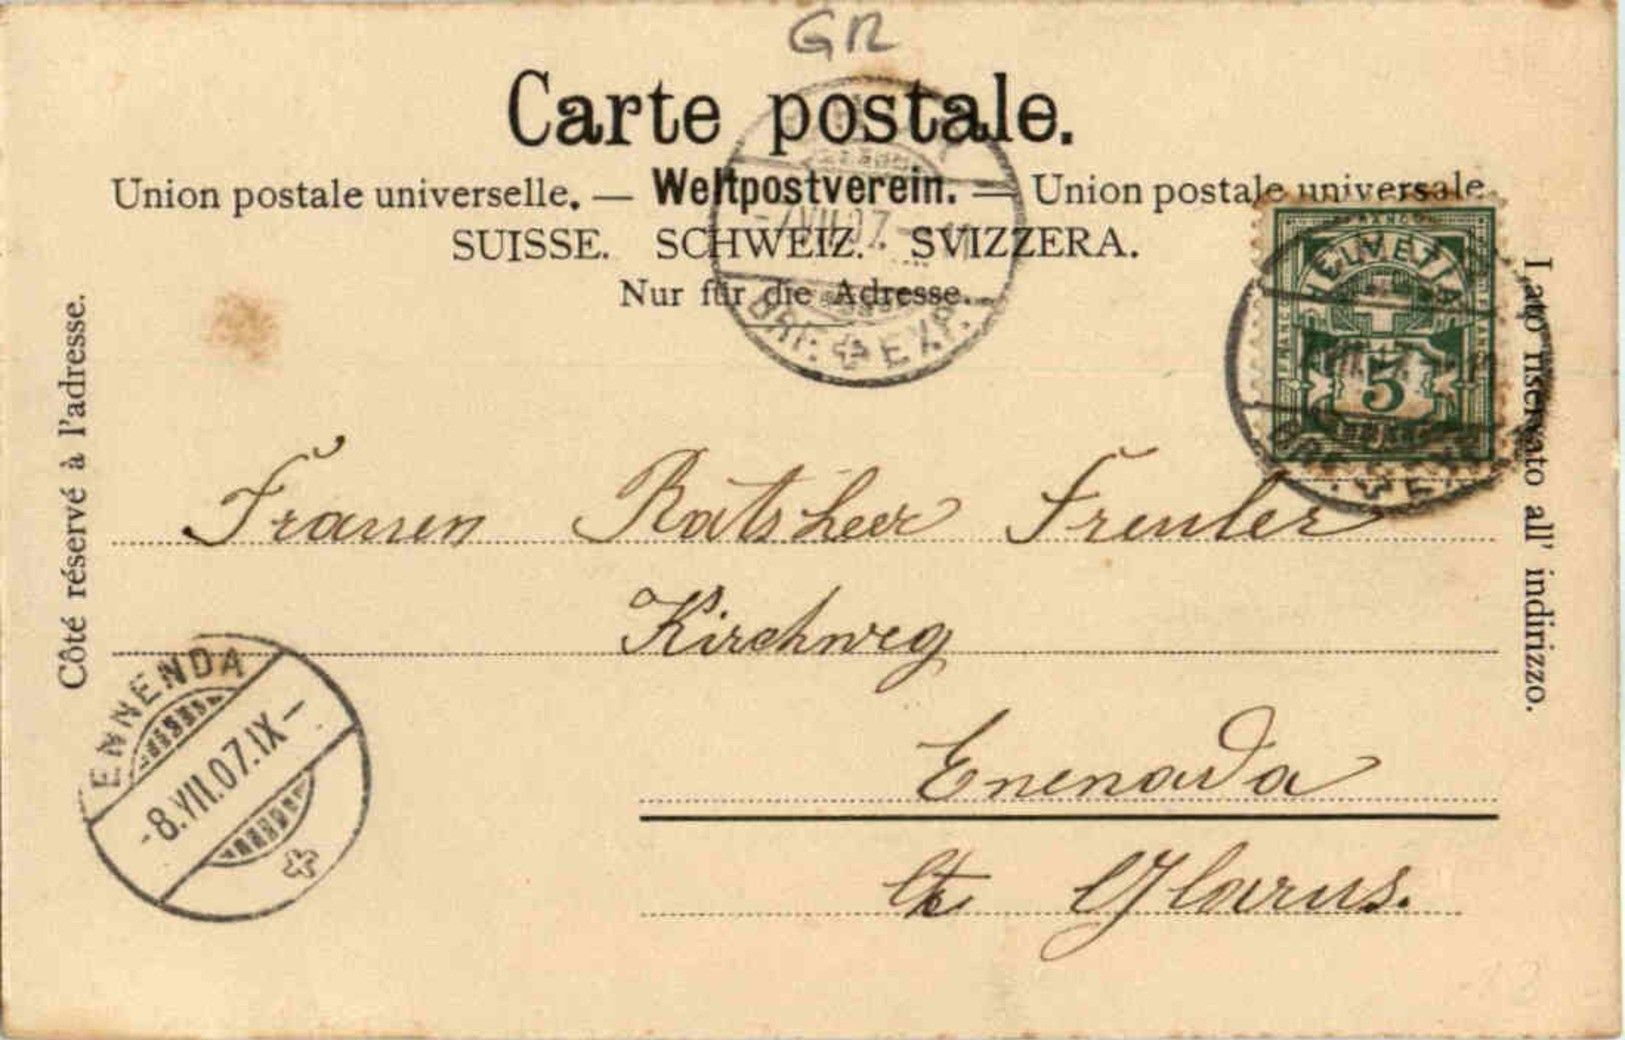 GR
Carte postale.
Union postale universelle. — Weltpostverein. — Union postale universale.
SUISSE. SCHWEIZ. SVIZZERA.
Nur für die Adresse.
Côté réservé à l'adresse.
Lato riservato all' indirizzo.
-7.VII.07.
BRF. EXP.
FRANCO
HELVETIA
5
Frauen Ratsheer Freuler
Kirchweg
Enenada
Ct. Glarus.
ENNENDA
-8.VII.07.IX-